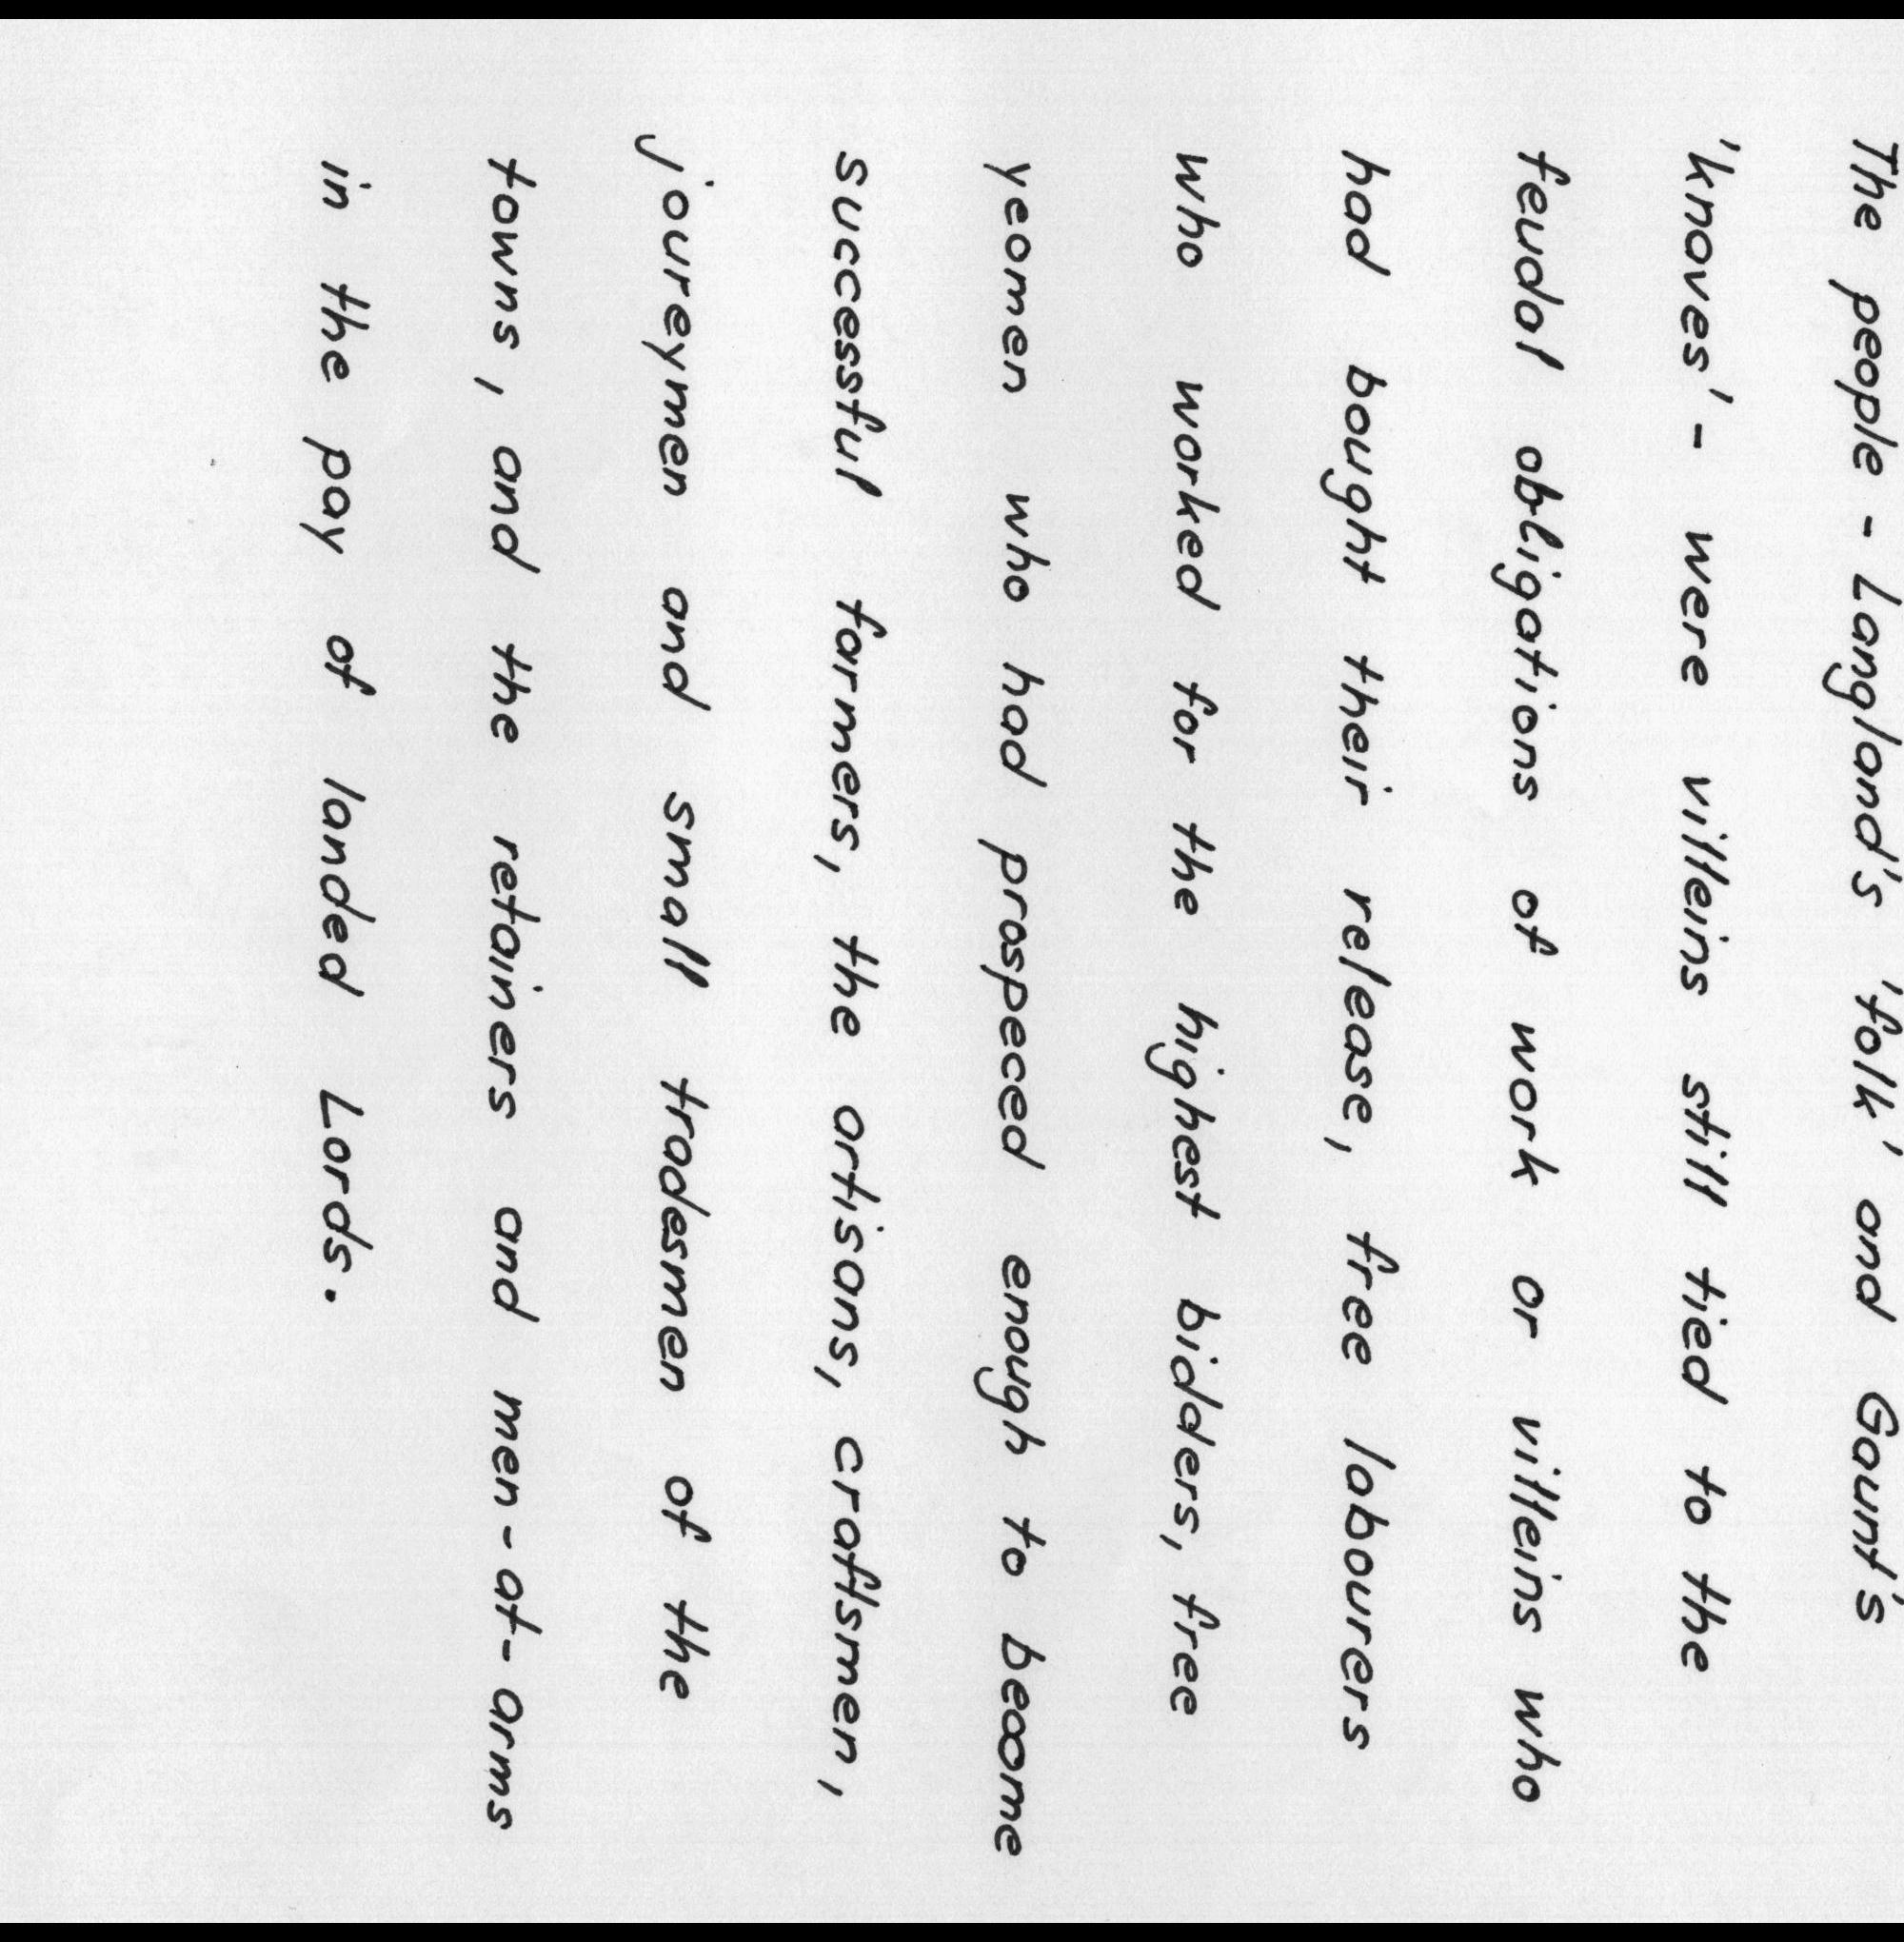 The people - Langland's 'folk' and Gaunt's
'knaves' - were villeins still tied to the
feudal obligations of work or villeins who
had bought their release, free labourers
who worked for the highest bidders, free
yeomen who had prospeced enough to become
successful farmers, the artisans, craftsmen,
joureymen and small tradesmen of the
towns, and the retainers and men-at-arms
in the pay of landed Lords.